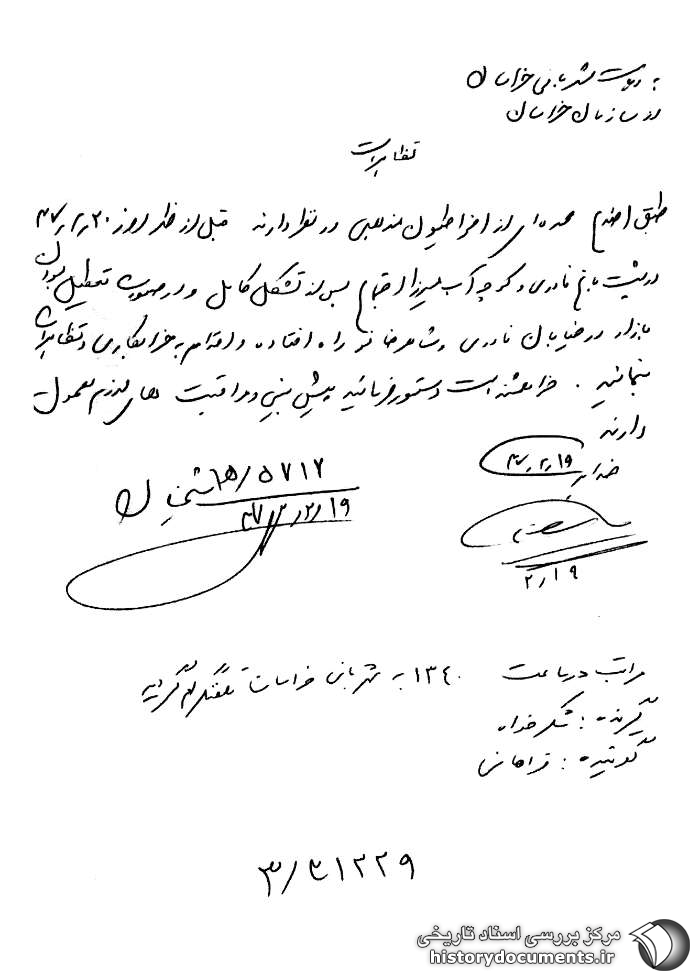 به ریاست شهربانی خراسان
از سازمان خراسان
تظاهرات
طبق اطلاع عده‌ای از افراطیون مذهبی در نظر دارند قبل از ظهر روز ۴۷٫۲٫۲۰
در پشت باغ نادری و کوچه آب میرزا اجتماع پس از تشکل کامل و در صورت تعطیل بودن
بازار در خیابان نادری و شاهرضا نو راه افتاده و اقدام به خرابکاری و تظاهرات
بنمایند. خواهشمند است دستور فرمائید پیش بینی و مراقبت های لازم معمول
دارند
۴۷٫۲٫۱۹
۵۷۱۲/ه‍
۴۷٫۲٫۱۹
۲٫۱۹
مراتب در ساعت ۱۳۴۰ به شهربانی خراسان تلفنگرام گردید
گیرنده : شکرخواه
گوینده : فراهانی
۳/۳۱۲۲۹
مرکز بررسی اسناد تاریخی
historydocuments.ir